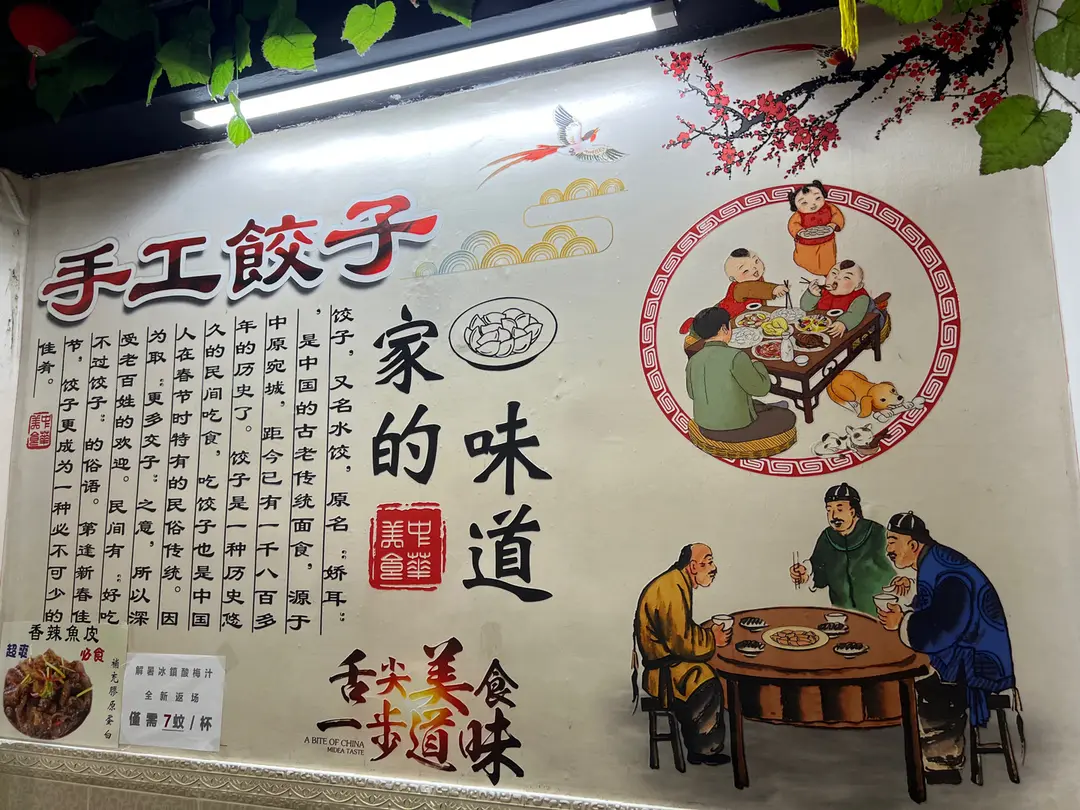 手工餃子
家的
味道
中華美食
饺子，又名水饺，原名“娇耳”
，是中国的古老传统面食，源于
中原宛城，距今已有一千八百多
年的历史了。饺子是一种历史悠
久的民间吃食，吃饺子也是中国
人在春节时特有的民俗传统。因
为取“更多交子”之意，所以深
受老百姓的欢迎。民间有“好吃
不过饺子”的俗语。第逢新春佳
节，饺子更成为一种必不可少的
佳肴。
中華美食
舌尖美食
一步道味
A BITE OF CHINA
MIDEA TASTE
香辣魚皮
超爽
必食
補充膠原蛋白
解暑冰鎮酸梅汁
全新返场
僅需7蚊/杯